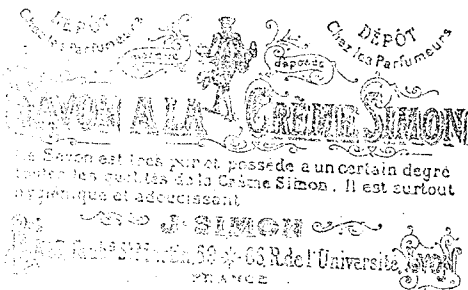 DÉPÔT
Chez les Parfumeurs
DÉPÔT
Chez les Parfumeurs
déposée
SAVON A LA CRÈME SIMON
Ce Savon est très pur et possède a un certain degré
toutes les qualités de la Crème Simon. Il est surtout
hygiénique et adoucissant
J. SIMON
Faubg St Martin, 59 66, R. de l'Université, LYON
FRANCE